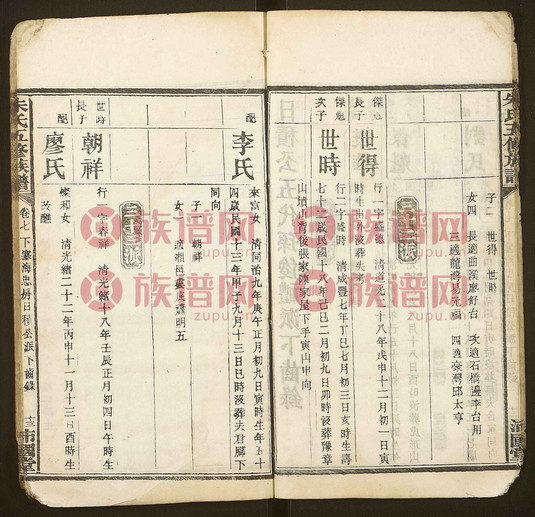 朱氏五修族譜
沛國堂
子二 世得 世時
女四 長適曲溪廖舒台 次適石橋邊李台用
三適龍博易元福 四適豪灣邱太亨
傑魁
長子
世得
行一字盛德 清道光二十八年戊申十二月初一日寅
時生出外沒葬失考
傑魁
次子
世時
行二字盛時 清咸豐七年丁巳七月初三日亥時生壽
七十二歲民國十八年己巳二月初九日卯時沒葬豫章
山墳山背後張家陳家屋下手寅山申向
配
李氏
來富女 清同治九年庚午正月初九日寅時生年五十
四歲民國十三年甲子九月十三日巳時沒葬夫君廟下
同向
子一 朝祥
女一 適湘邑婁底蕭明五
世時
長子
朝祥
行一字春祥 清光緒十八年壬辰正月初四日午時生
配
廖氏
燦和女 清光緒二十二年丙申十一月十三日酉時生
改醮
朱氏五修族譜
卷七下寨海忠房日積公派下齒錄
十三
沛國堂
族譜网
zupu.cn
族譜网
zupu.cn